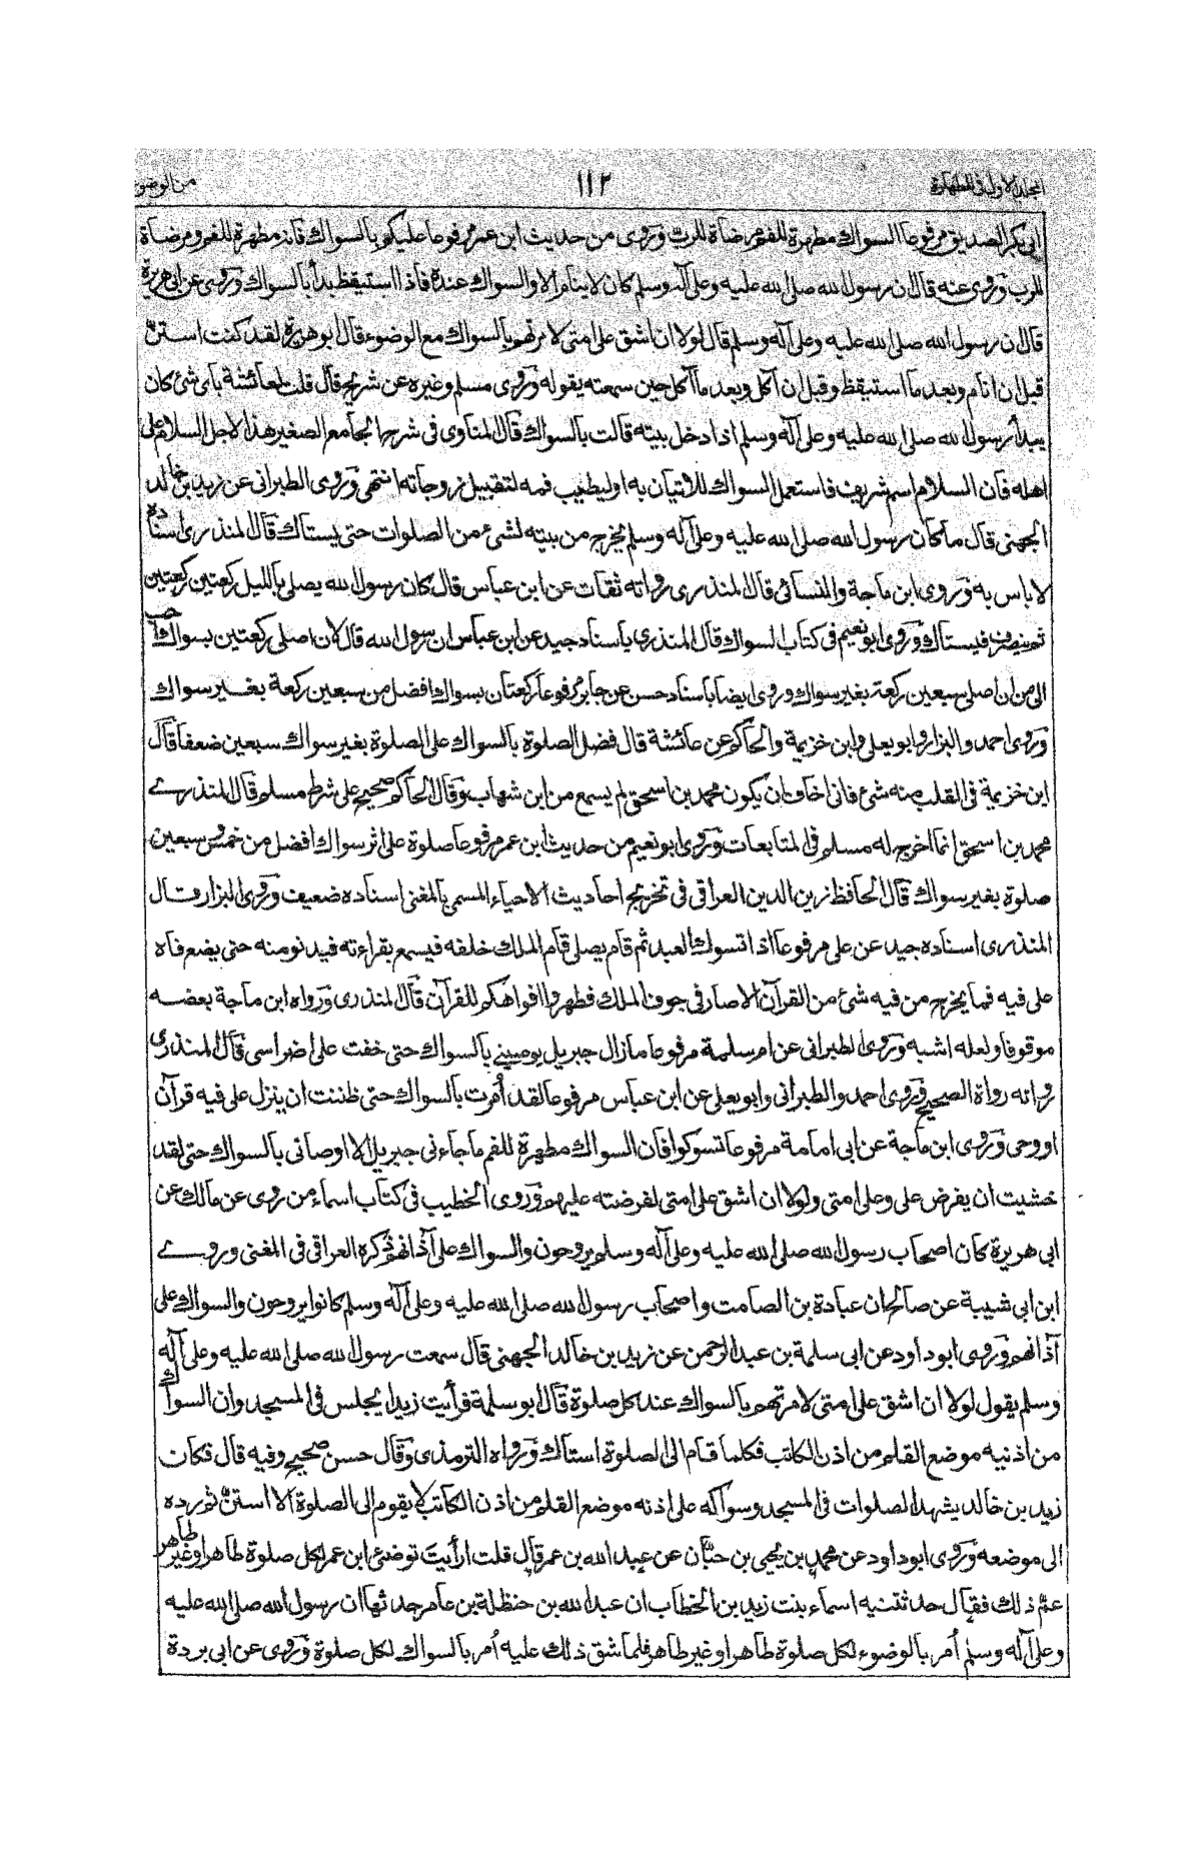 المجلد الاول فى الطهارة ١١٢ من الوضو
ابى بكر الصديق مرفوعا السواك مطهرة للفم مرضاة للرب وروى من حديث ابن عمر مرفوعا عليكم بالسواك فانه مطهرة للفم ومرضاة
للرب وروى عنه قال ان رسول الله صلى الله عليه وعلى آله وسلم كان لا ينام الا والسواك عنده فاذا استيقظ بدأ بالسواك وروى عن ابى هريرة
قال ان رسول الله صلى الله عليه وعلى آله وسلم قال لولا ان اشق على امتى لامرتهم بالسواك مع الوضوء قال ابو هريرة لقد كنت استن
قبل ان انام وبعد ما استيقظ وقبل ان آكل وبعد ما آكل حين سمعته يقوله وروى مسلم وغيره عن شريح قال قلت لعائشة باى شئ كان
يبدأ رسول الله صلى الله عليه وعلى آله وسلم اذا دخل بيته قالت بالسواك قال المناوى فى شرح الجامع الصغير هذا لاجل السلام على
اهله فان السلام اسم شريف فاستعمل السواك للاتيان به او ليطيب فمه لتقبيل زوجاته انتهى وروى الطبرانى عن زيد بن خالد
الجهنى قال ما كان رسول الله صلى الله عليه وعلى آله وسلم يخرج من بيته لشئ من الصلوات حتى يستاك قال المنذرى اسناده
لا باس به وروى ابن ماجة والنسائى قال المنذرى رواته ثقات عن ابن عباس قال كان رسول الله يصلى بالليل ركعتين ركعتين
ثم ينصرف فيستاك وروى ابو نعيم فى كتاب السواك قال المنذرى باسناد جيد عن ابن عباس ان رسول الله قال لان اصلى ركعتين بسواك احب
الى من ان اصلى سبعين ركعة بغير سواك وروى ايضا باسناد حسن عن جابر مرفوعا ركعتان بسواك افضل من سبعين ركعة بغير سواك
وروى احمد والبزار وابو يعلى وابن خزيمة والحاكم عن عائشة قال فضل الصلوة بالسواك على الصلوة بغير سواك سبعين ضعفا قال
ابن خزيمة فى القلب منه شئ فانى اخاف ان يكون محمد بن اسحق لم يسمع من ابن شهاب وقال الحاكم صحيح على شرط مسلم قال المنذرے
محمد بن اسحق انما اخرج له مسلم فى المتابعات وروى ابو نعيم من حديث ابن عمر مرفوعا صلوة على اثر سواك افضل من خمس وسبعين
صلوة بغير سواك قال الحافظ زين الدين العراقى فى تخريج احاديث الاحياء المسمى بالمغنى اسناده ضعيف وروى البزار وقال
المنذرى اسناده جيد عن على مرفوعا اذا تسوك العبد ثم قام يصلى قام الملك خلفه فيسمع بقراءته فيدنو منه حتى يضع فاه
على فيه فما يخرج من فيه شئ من القرآن الا صار فى جوف الملك فطهروا افواهكم للقرآن قال المنذرى ورواه ابن ماجة بعضه
موقوفا ولعله اشبه وروى الطبرانى عن ام سلمة مرفوعا ما زال جبريل يوصينے بالسواك حتى خفت على اضراسى قال المنذرى
رواته رواة الصحيح وروى احمد والطبرانى وابو يعلى عن ابن عباس مرفوعا لقد أمرت بالسواك حتى ظننت ان ينزل على فيه قرآن
او وحى وروى ابن ماجة عن ابى امامة مرفوعا تسوكوا فان السواك مطهرة للفم ما جاءنى جبريل الا اوصانى بالسواك حتى لقد
خشيت ان يفرض على وعلى امتى ولولا ان اشق على امتى لفرضته عليهم وروى الخطيب فى كتاب اسماء من روى عن مالك عن
ابى هريرة كان اصحاب رسول الله صلى الله عليه وعلى آله وسلم يروحون والسواك على آذانهم ذكره العراقى فى المغنى وروے
ابن ابى شيبة عن صالح ان عبادة بن الصامت واصحاب رسول الله صلى الله عليه وعلى آله وسلم كانوا يروحون والسواك على
آذانهم وروى ابو داود عن ابى سلمة بن عبد الرحمن عن زيد بن خالد الجهنى قال سمعت رسول الله صلى الله عليه وعلى آله
وسلم يقول لولا ان اشق على امتى لامرتهم بالسواك عند كل صلوة قال ابو سلمة فرأيت زيدا يجلس فى المسجد وان السواك
من اذنيه موضع القلم من اذن الكاتب فكلما قام الى الصلوة استاك ورواه الترمذى وقال حسن صحيح وفيه قال فكان
زيد بن خالد يشهد الصلوات فى المسجد وسواكه على اذنه موضع القلم من اذن الكاتب لا يقوم الى الصلوة الا استن ثم رده
الى موضعه وروى ابو داود عن محمد بن يحيى بن حبان عن عبد الله بن عمر قال قلت ارأيت توضئ ابن عمر لكل صلوة طاهرا وغير طاهر
عم ذلك فقال حدثتنيه اسماء بنت زيد بن الخطاب ان عبد الله بن حنظلة بن عامر حدثها ان رسول الله صلى الله عليه
وعلى آله وسلم أمر بالوضوء لكل صلوة طاهرا وغير طاهر فلما شق ذلك عليه أمر بالسواك لكل صلوة وروى عن ابى بردة